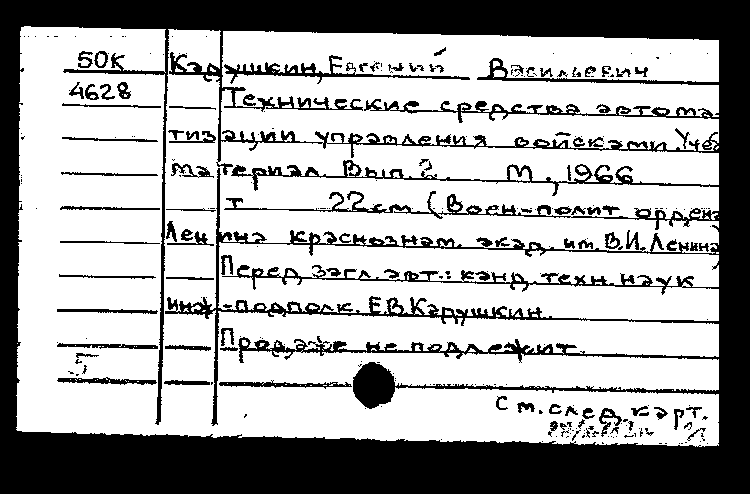 50К Карушкин, Евгений Васильевич
4628 Технические средства автома-
тизации управления войсками. Учеб
материал. Вып. 2. М., 1966.
т 22 см. (Воен-полит ордена
Ленина краснознам. акад. им. В.И. Ленина)
Перед загл. авт.: канд. техн. наук
инж-подполк. Е.В Карушкин.
Продаже не подлежит.
5
См. след. карт.